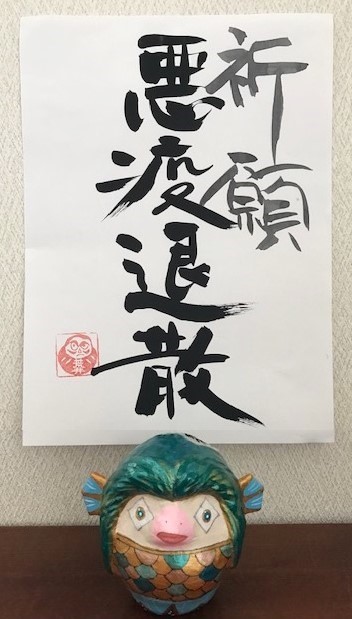 祈願
悪疫退散